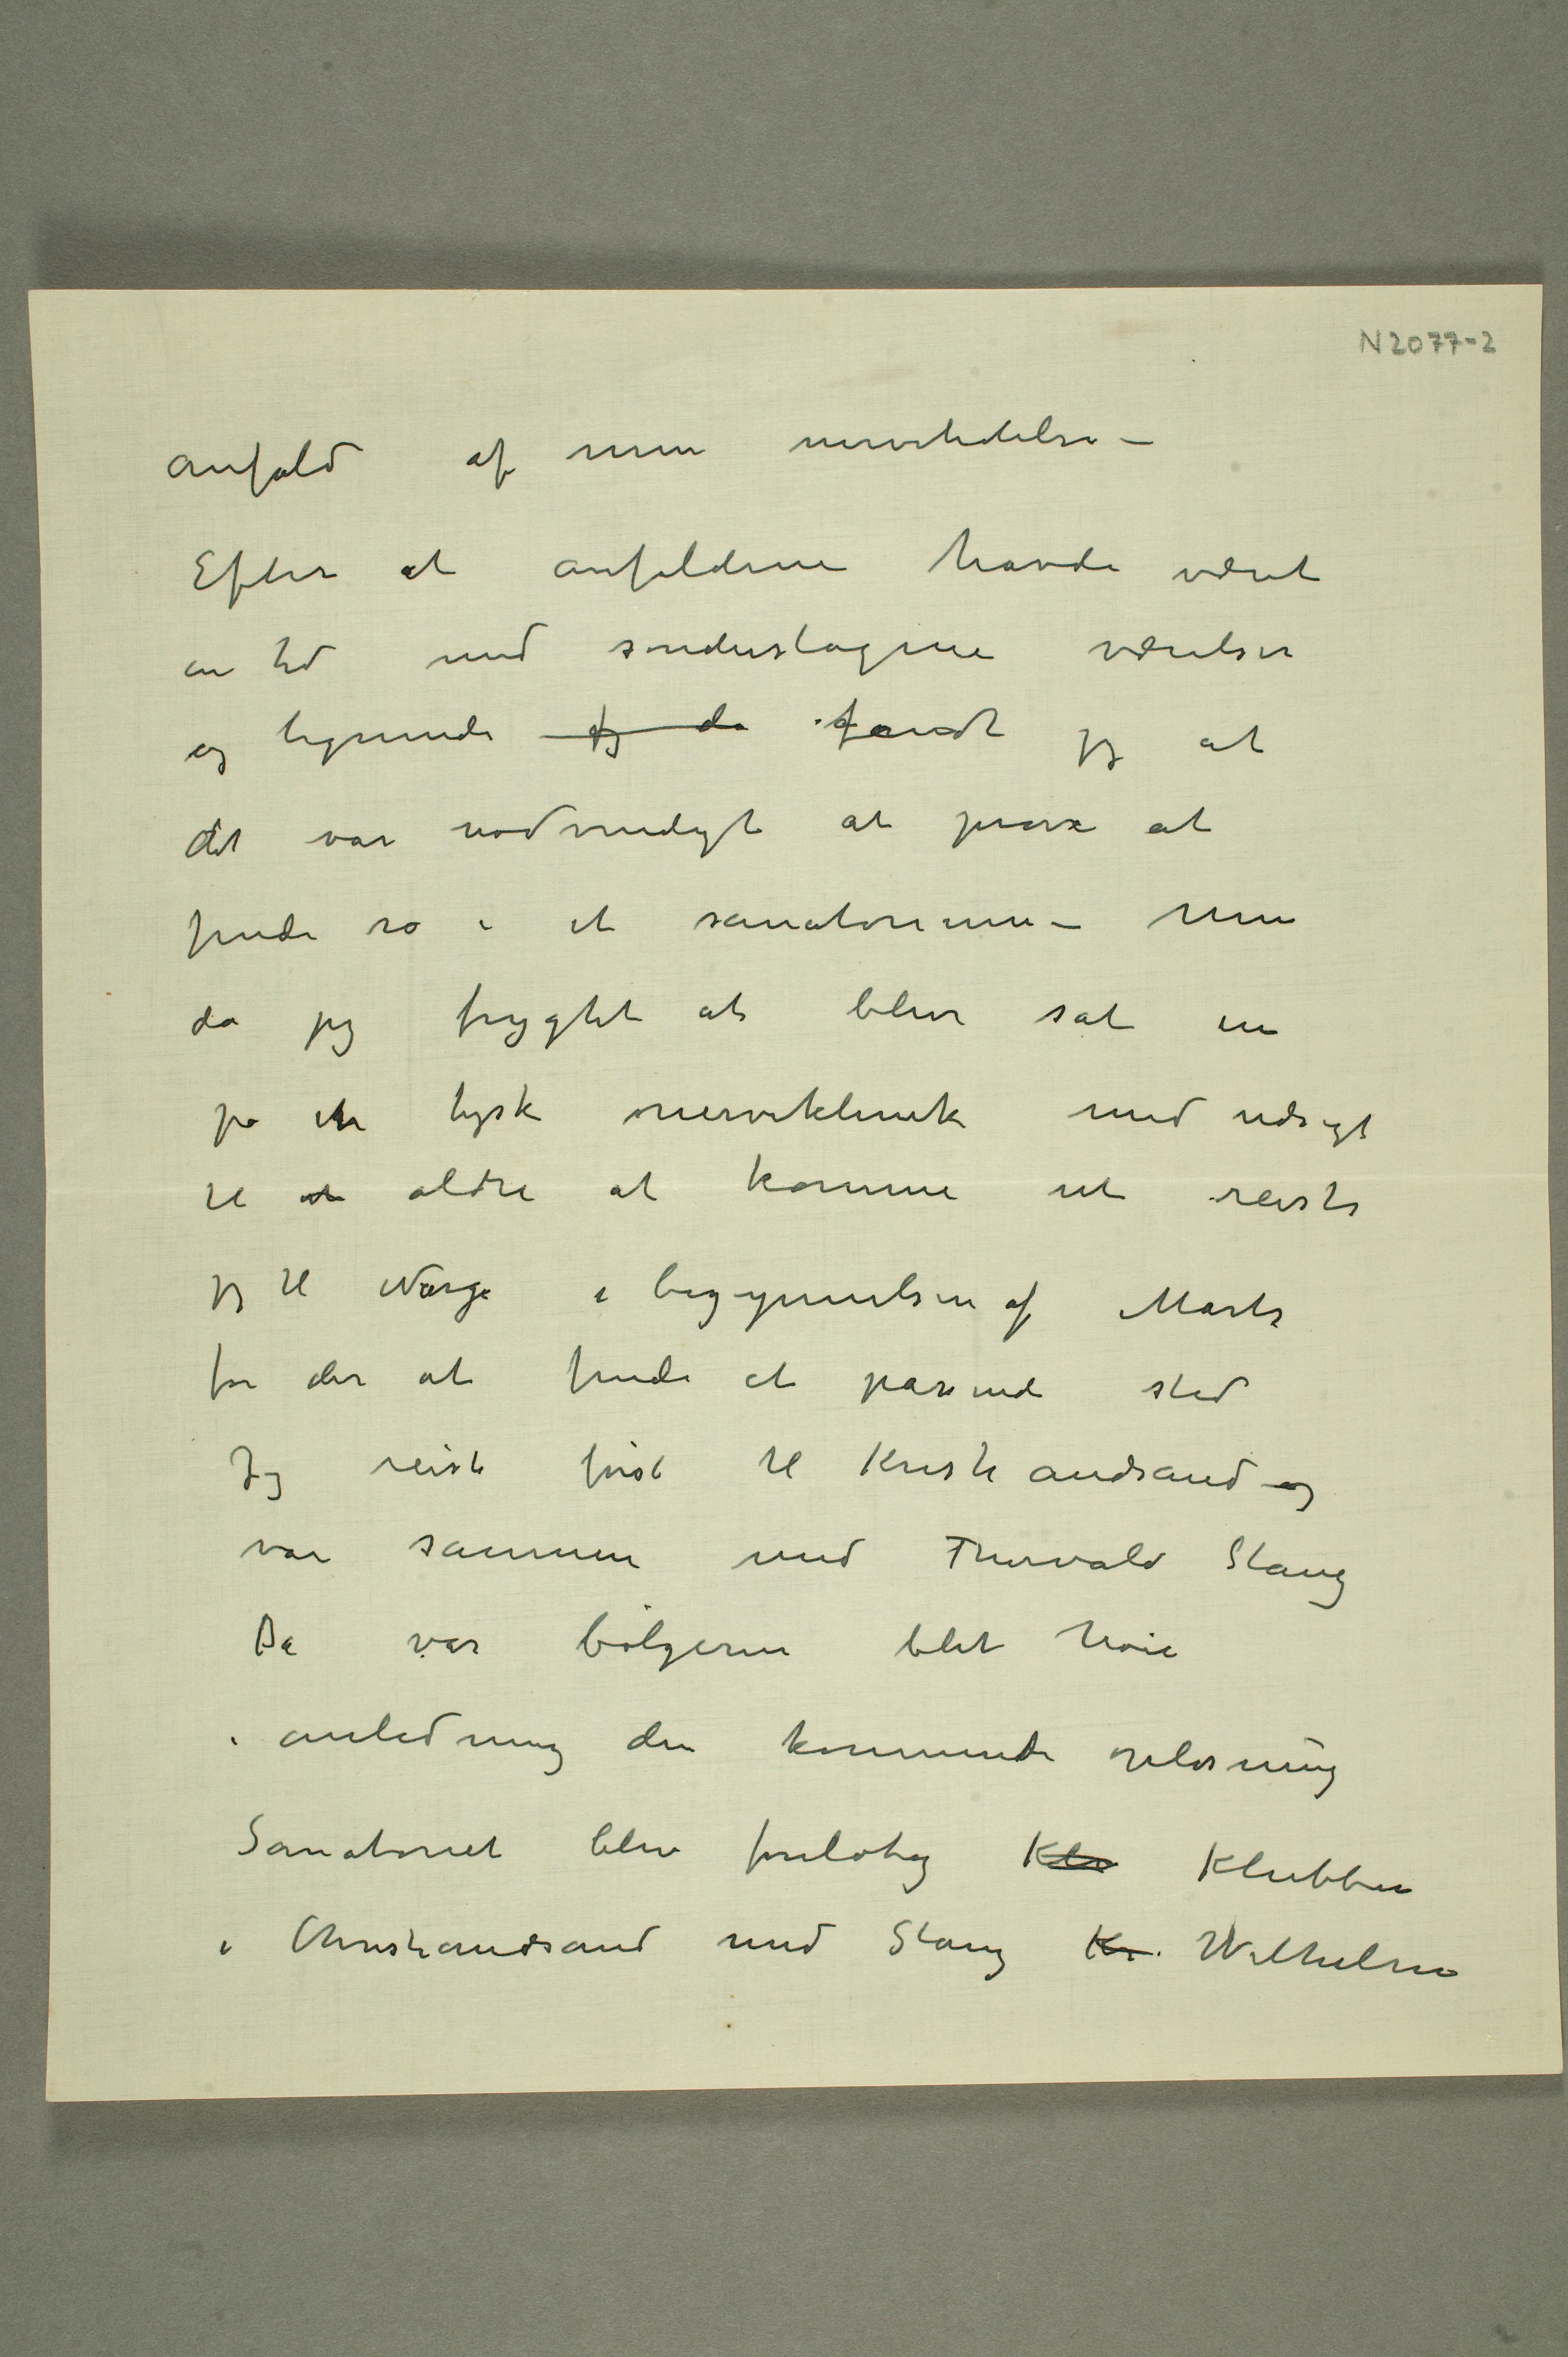 N 2077-2
anfald af min nervelidelse –
Efter at anfaldene havde været
en tid med sønderslagene værelser
og lignende jeg da fandt jeg at
det var nødvendigt at prøve at
finde ro i et sanatorium – Men
da jeg frygtet at blive sat in
på en tysk nerveklinik med udsigt
til at aldri at komme ut reiste
jeg til Norge i begynnelsen af Marts
for der at finde et passende sted
Jeg reiste først til Kristiandsand og
var sammen med Thorvald Stang
Da var bølgerne blet høie
i anledning den kommende opløsning
Sanatoriet blev foreløbig Klu Klubben
i Christiandsand med Stang Kr. Wilhelm